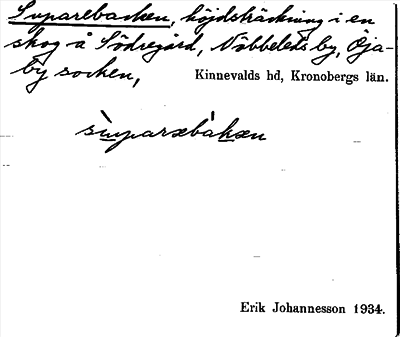 Suparebacken, höjdsträckning i en
skog å Södregård, Nöbbeleds by, Öja-
by socken, Kinnevalds hd, Kronobergs län.
sùparebàkæn
Erik Johannesson 1934.